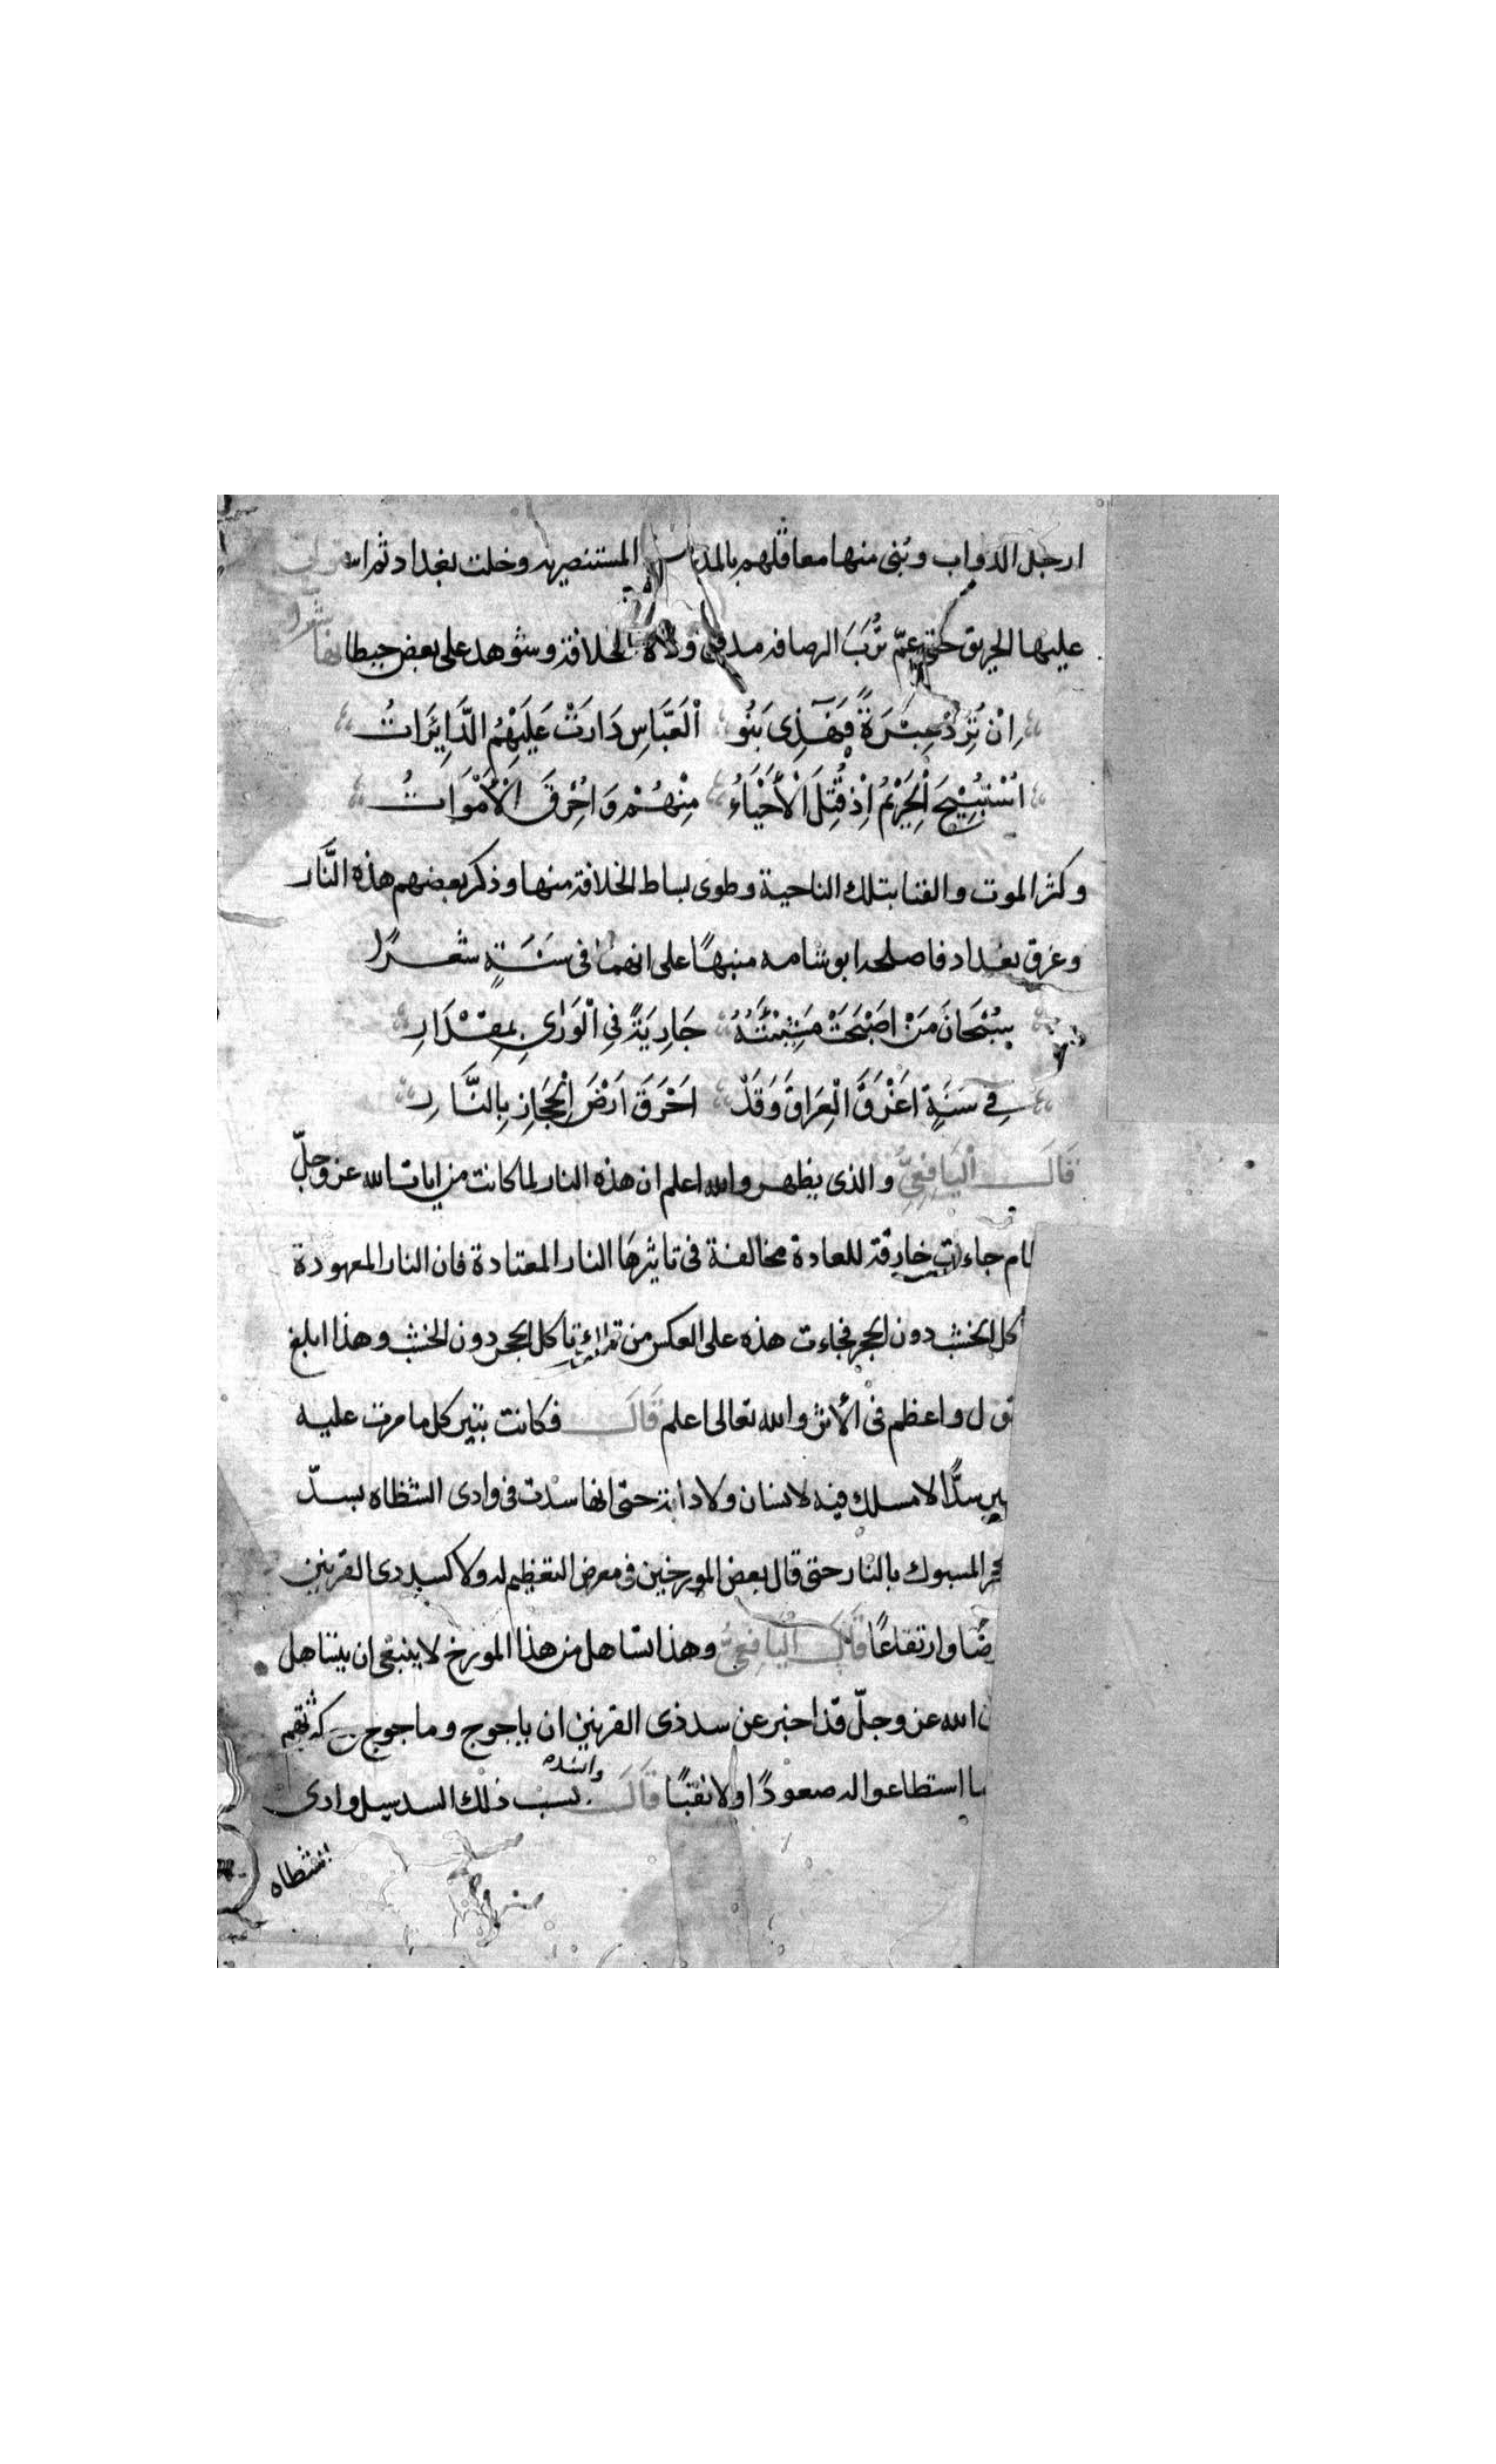 ارجل الدواب وبنى منها معاقلهم بالمدرسة المستنصريه وخلت بغداد ثم استولى
عليها الحريق حتى عمّ تُرَبَ الرصافه مدفن ولاة الخلافة وشوهد على بعض حيطانها شعرا
اِنْ تُرِدْ عِبْرَةً فَهَذِى بَنُو الْعَبَّاسِ دَارَتْ عَلَيْهِمُ الدَّايِرَاتُ
اُسْتُبِيْحَ الْحَرِيْمُ اِذْ قُتِلَ الْأَحْيَاءُ مِنْهُمْ وَاُحْرِقَ الْأَمْوَاتُ
وكثر الموت والفنا بتلك الناحية وطوى بساط الخلافة منها وذكر بعضهم هذه النَّار
وغرق بغداد فاصلحه ابو شامه منبهًا على انهما فى سَنَةٍ شعرًا
سُبْحَانَ مَنْ اَصْبَحَتْ مَشِيْئَتُهُ جَارِيَةً فِي الْوَرٰى بِمِقْدَارِ
فِي سَنَةٍ اَغْرَقَ الْعِرَاقَ وَقَدْ اَحْرَقَ اَرْضَ الْحِجَازِ بِالنَّارِ
قَالَ الْيَافِعِيُّ والذى يظهر والله اعلم ان هذه النار لما كانت من ايات الله عز وجلّ
جاءت خارقة للعادة مخالفة فى تاثيرها النار المعتادة فان النار المعهودة
كل الخشب دون الحجر فجاءت هذه على العكس من تاكل الحجر دون الخشب وهذا ابلغ
واعظم فى الأثر والله تعالى اعلم قَالَ فكانت تثير كل ما مرت عليه
سدًّا لا مسلك فيه لانسان ولا دابة حتى انها سدت فى وادى الشظاه بسدّ
المسبوك بالنار حتى قال بعض المورخين فى معرض التعظيم له ولا كسد ذى القرنين
ضًا وارتفاعًا قَالَ الْيَافِعِيُّ وهذا تساهل من هذا المورخ لا ينبغى ان يتساهل
الله عز وجلّ قد اخبر عن سد ذى القرنين ان ياجوج وماجوج
ا استطاعوا له صعودًا ولا نقبًا قَالَ بسبب ذلك السد سيل وادى
الشظاه